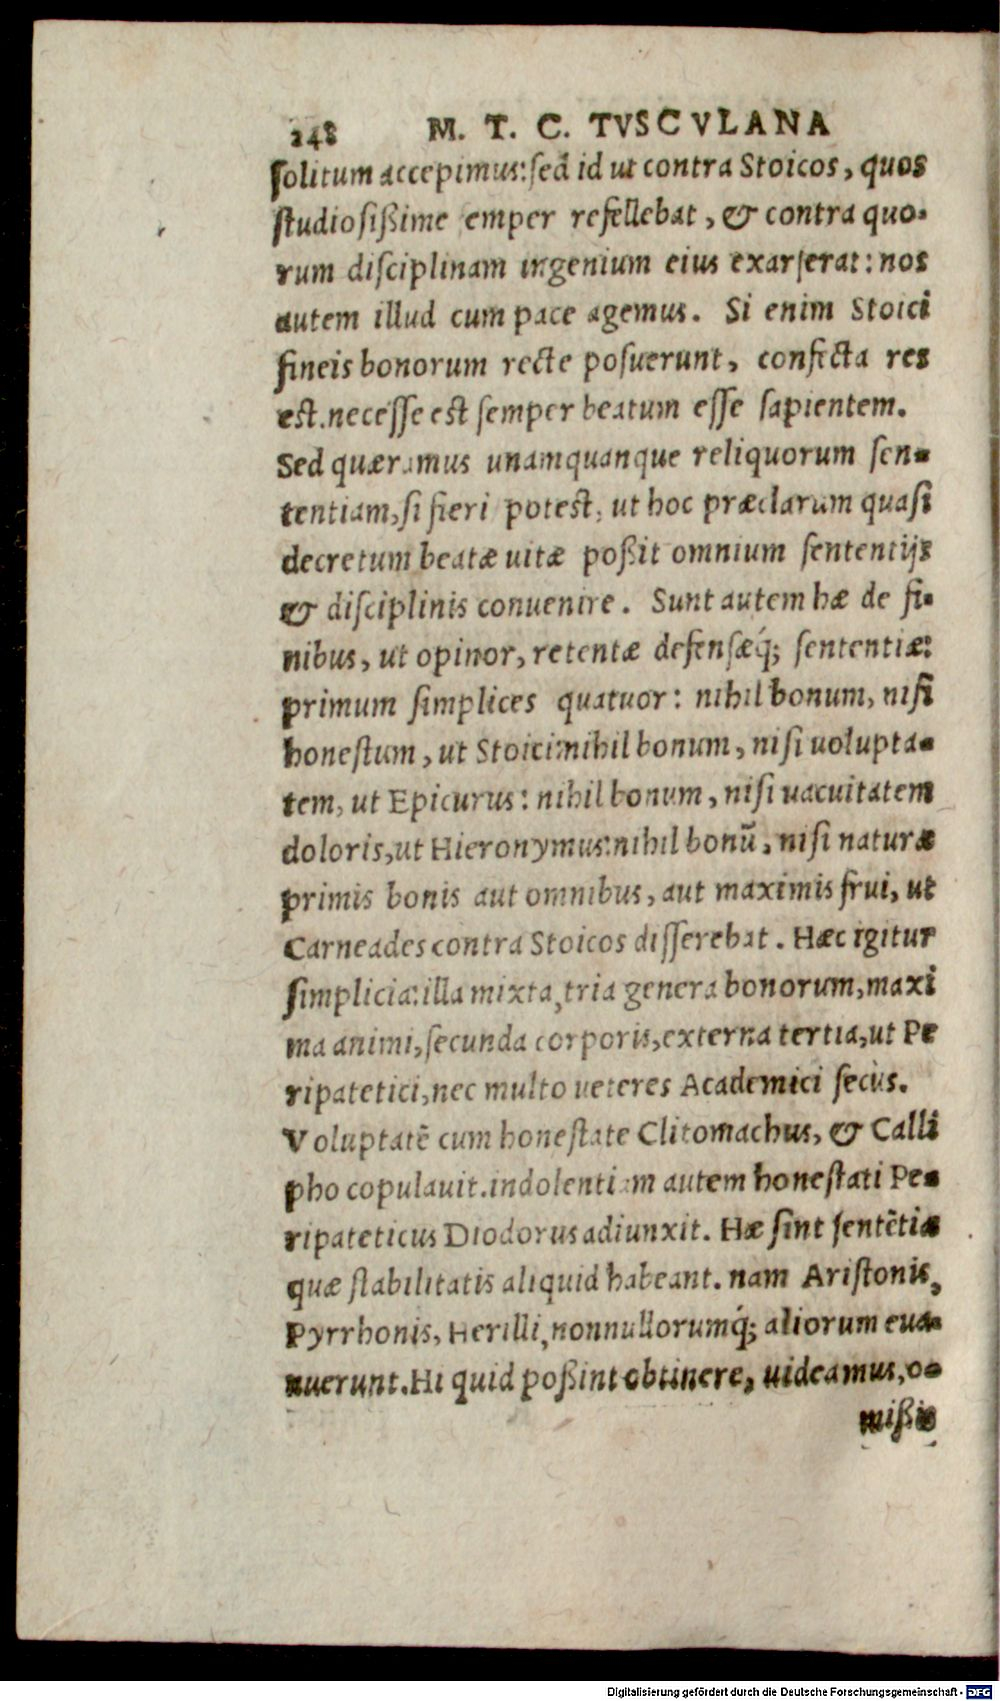 248 M. T. C. TVSCVLANA
ſolitum accepimus: ſed id ut contra Stoicos, quos
ſtudioſißime emper refellebat, & contra quo-
rum diſciplinam ingenium eius exarſerat: nos
autem illud cum pace agemus. Si enim Stoici
fineis bonorum recte poſuerunt, confecta res
est. neceſſe est ſemper beatum eſſe ſapientem.
Sed quæramus unamquanque reliquorum ſen-
tentiam, ſi fieri potest, ut hoc præclarum quaſi
decretum beatæ uitæ poßit omnium ſententijs
& diſciplinis conuenire. Sunt autem hæ de fi-
nibus, ut opinor, retentæ defenſæq́; ſententiæ:
primum ſimplices quatuor: nihil bonum, niſi
honeſtum, ut Stoici: nihil bonum, niſi uolupta-
tem, ut Epicurus: nihil bonum, niſi uacuitatem
doloris, ut Hieronymus: nihil bonũ, niſi naturæ
primis bonis aut omnibus, aut maximis frui, ut
Carneades contra Stoicos diſſerebat. Hæc igitur
ſimplicia: illa mixta, tria genera bonorum, maxi
ma animi, ſecunda corporis, externa tertia, ut Pe
ripatetici, nec multo ueteres Academici ſecùs.
Voluptatẽ cum honeſtate Clitomachus, & Calli
pho copulauit. indolentiam autem honeſtati Pe-
ripateticus Diodorus adiunxit. Hæ ſint ſentẽtiæ
quæ ſtabilitatis aliquid habeant. nam Ariſtonis,
Pyrrhonis, Herilli, nonnullorumq́; aliorum eua-
nuerunt. Hi quid poßint obtinere, uideamus, o-
mißis
Digitalisierung gefördert durch die Deutsche Forschungsgemeinschaft - DFG